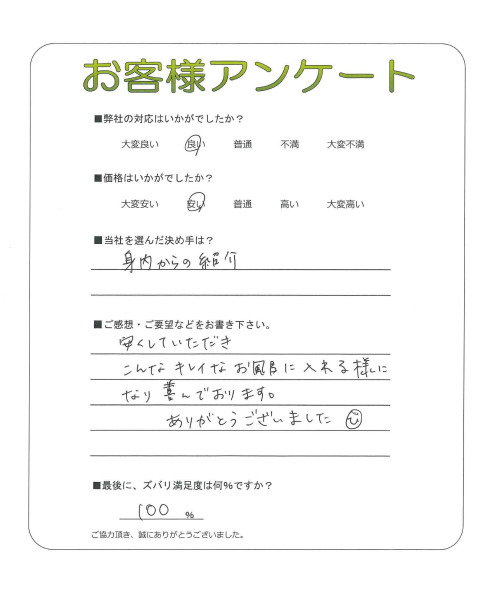 お客様アンケート
■弊社の対応はいかがでしたか？
大変良い 良い 普通 不満 大変不満
■価格はいかがでしたか？
大変安い 安い 普通 高い 大変高い
■当社を選んだ決め手は？
身内からの紹介
■ご感想・ご要望などをお書き下さい。
安くしていただき
こんなキレイなお風呂に入れる様に
なり喜んでおります。
ありがとうございました
■最後に、ズバリ満足度は何％ですか？
100 %
ご協力頂き、誠にありがとうございました。